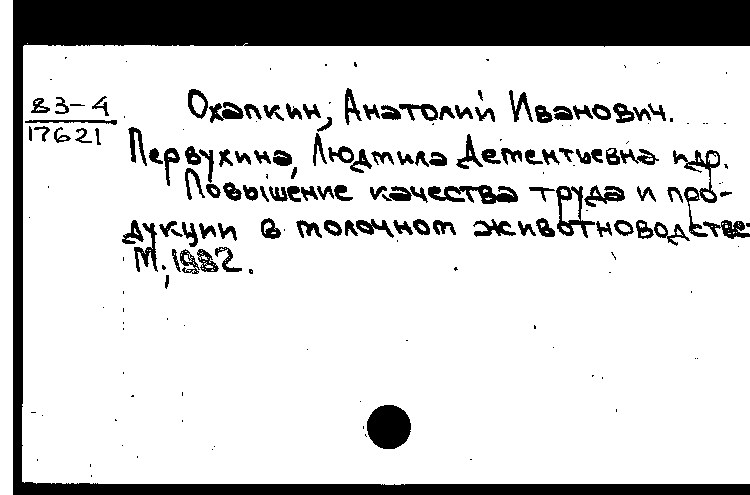 83-4
17621
Охапкин, Анатолий Иванович.
Первухина, Людмила Дементьевна и др.
Повышение качества труда и про-
дукции в молочном животноводстве.
М., 1982.